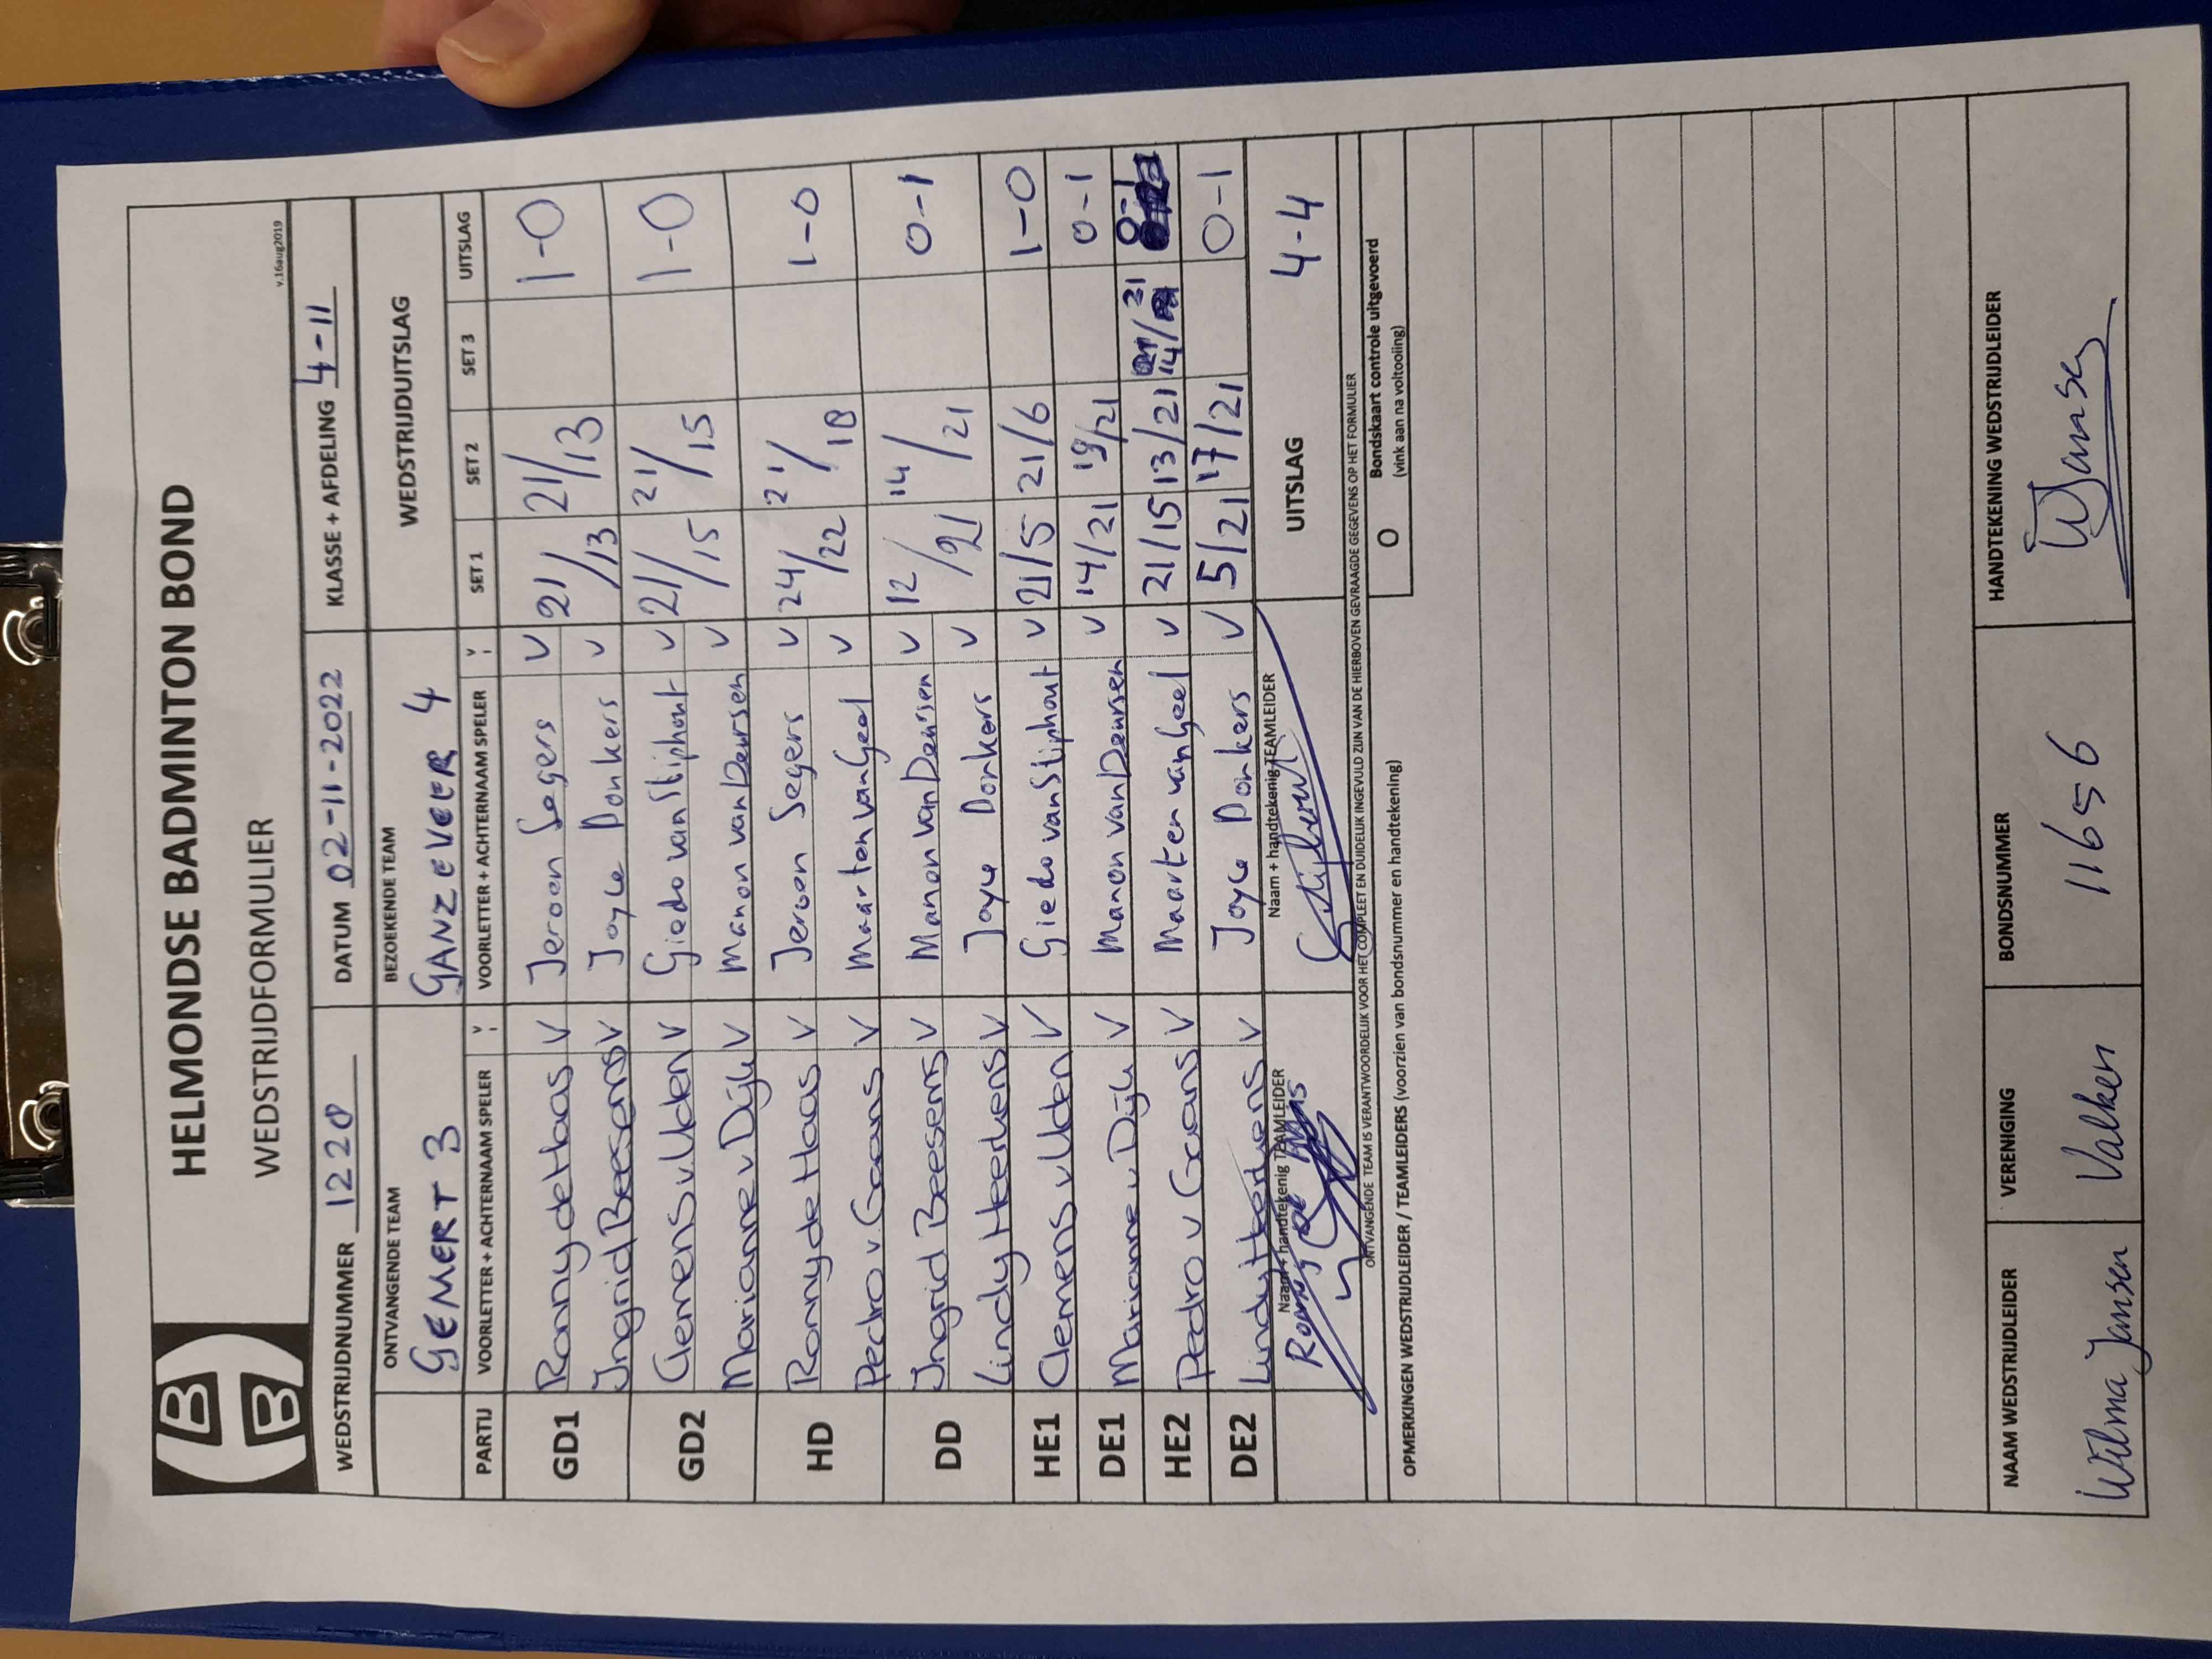 HELMONDSE BADMINTON BOND
WEDSTRIJDFORMULIER
v.16aug2019
WEDSTRIJDNUMMER 1220 DATUM 02-11-2022 KLASSE + AFDELING 4-11
ONTVANGENDE TEAM BEZOEKENDE TEAM WEDSTRIJDUITSLAG
GEMERT 3 GANZEVEER 4
PARTIJ VOORLETTER + ACHTERNAAM SPELER V VOORLETTER + ACHTERNAAM SPELER V SET 1 SET 2 SET 3 UITSLAG
GD1 Ronny de Haas V Jeroen Segers V 21/13 21/13 1-0
Ingrid Beesems V Joyce Donkers V
GD2 Clemens v Uden V Giedo van Stiphout V 21/15 21/15 1-0
Marianne v Dijk V Manon van Deursen V
HD Ronny de Haas V Jeroen Segers V 24/22 21/18 1-0
Pedro v. Gaans V Maarten van Geel V
DD Ingrid Beesems V Manon van Deursen V 12/21 14/21 0-1
Lindy Heerkens V Joyce Donkers V
HE1 Clemens v Uden V Giedo van Stiphout V 21/5 21/6 1-0
DE1 Marianne v Dijk V Manon van Deursen V 14/21 19/21 0-1
HE2 Pedro v Gaans V Maarten van Geel V 21/15 13/21 14/21 0-1
DE2 Lindy Heerkens V Joyce Donkers V 5/21 17/21 0-1
Naam + handtekenig TEAMLEIDER Naam + handtekenig TEAMLEIDER UITSLAG 4-4
Ronny de Haas
ONTVANGENDE TEAM IS VERANTWOORDELIJK VOOR HET COMPLEET EN DUIDELIJK INGEVULD ZIJN VAN DE HIERBOVEN GEVRAAGDE GEGEVENS OP HET FORMULIER
OPMERKINGEN WEDSTRIJDLEIDER / TEAMLEIDERS (voorzien van bondsnummer en handtekening) O Bondskaart controle uitgevoerd
(vink aan na voltooiing)
NAAM WEDSTRIJDLEIDER VERENIGING BONDSNUMMER HANDTEKENING WEDSTRIJDLEIDER
Wilma Jansen Valken 11656 WJansen